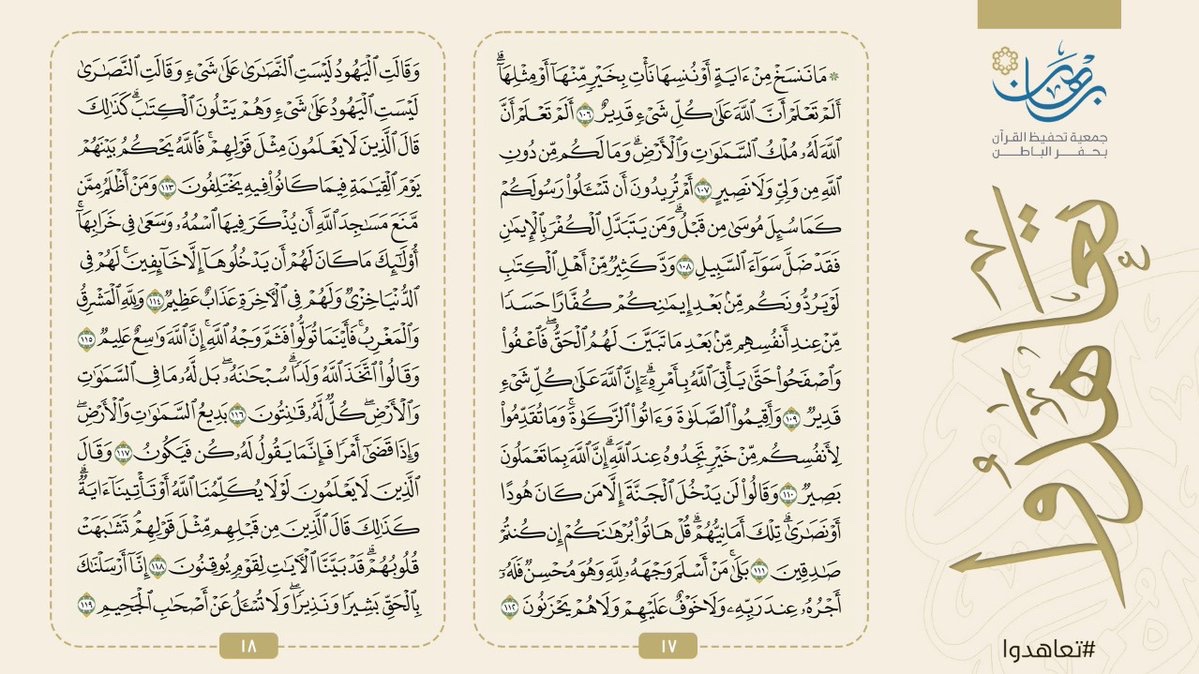 برهان
جمعية تحفيظ القرآن
بحفر الباطن
تعاهدوا
#تعاهدوا
۞ مَا نَنسَخۡ مِنۡ ءَايَةٍ أَوۡ نُنسِهَا نَأۡتِ بِخَيۡرٖ مِّنۡهَآ أَوۡ مِثۡلِهَآۗ
أَلَمۡ تَعۡلَمۡ أَنَّ ٱللَّهَ عَلَىٰ كُلِّ شَيۡءٖ قَدِيرٌ ١٠٦ أَلَمۡ تَعۡلَمۡ أَنَّ
ٱللَّهَ لَهُۥ مُلۡكُ ٱلسَّمَٰوَٰتِ وَٱلۡأَرۡضِۗ وَمَا لَكُم مِّن دُونِ
ٱللَّهِ مِن وَلِيّٖ وَلَا نَصِيرٍ ١٠٧ أَمۡ تُرِيدُونَ أَن تَسۡـَٔلُواْ رَسُولَكُمۡ
كَمَا سُئِلَ مُوسَىٰ مِن قَبۡلُۗ وَمَن يَتَبَدَّلِ ٱلۡكُفۡرَ بِٱلۡإِيمَٰنِ
فَقَدۡ ضَلَّ سَوَآءَ ٱلسَّبِيلِ ١٠٨ وَدَّ كَثِيرٞ مِّنۡ أَهۡلِ ٱلۡكِتَٰبِ
لَوۡ يَرُدُّونَكُم مِّنۢ بَعۡدِ إِيمَٰنِكُمۡ كُفَّارًا حَسَدٗا
مِّنۡ عِندِ أَنفُسِهِم مِّنۢ بَعۡدِ مَا تَبَيَّنَ لَهُمُ ٱلۡحَقُّۖ فَٱعۡفُواْ
وَٱصۡفَحُواْ حَتَّىٰ يَأۡتِيَ ٱللَّهُ بِأَمۡرِهِۦٓۗ إِنَّ ٱللَّهَ عَلَىٰ كُلِّ شَيۡءٖ
قَدِيرٞ ١٠٩ وَأَقِيمُواْ ٱلصَّلَوٰةَ وَءَاتُواْ ٱلزَّكَوٰةَۚ وَمَا تُقَدِّمُواْ
لِأَنفُسِكُم مِّنۡ خَيۡرٖ تَجِدُوهُ عِندَ ٱللَّهِۗ إِنَّ ٱللَّهَ بِمَا تَعۡمَلُونَ
بَصِيرٞ ١١٠ وَقَالُواْ لَن يَدۡخُلَ ٱلۡجَنَّةَ إِلَّا مَن كَانَ هُودًا
أَوۡ نَصَٰرَىٰۗ تِلۡكَ أَمَانِيُّهُمۡۗ قُلۡ هَاتُواْ بُرۡهَٰنَكُمۡ إِن كُنتُمۡ
صَٰدِقِينَ ١١١ بَلَىٰۚ مَنۡ أَسۡلَمَ وَجۡهَهُۥ لِلَّهِ وَهُوَ مُحۡسِنٞ فَلَهُۥٓ
أَجۡرُهُۥ عِندَ رَبِّهِۦ وَلَا خَوۡفٌ عَلَيۡهِمۡ وَلَا هُمۡ يَحۡزَنُونَ ١١٢
١٧
وَقَالَتِ ٱلۡيَهُودُ لَيۡسَتِ ٱلنَّصَٰرَىٰ عَلَىٰ شَيۡءٖ وَقَالَتِ ٱلنَّصَٰرَىٰ
لَيۡسَتِ ٱلۡيَهُودُ عَلَىٰ شَيۡءٖ وَهُمۡ يَتۡلُونَ ٱلۡكِتَٰبَۗ كَذَٰلِكَ
قَالَ ٱلَّذِينَ لَا يَعۡلَمُونَ مِثۡلَ قَوۡلِهِمۡۚ فَٱللَّهُ يَحۡكُمُ بَيۡنَهُمۡ
يَوۡمَ ٱلۡقِيَٰمَةِ فِيمَا كَانُواْ فِيهِ يَخۡتَلِفُونَ ١١٣ وَمَنۡ أَظۡلَمُ مِمَّن
مَّنَعَ مَسَٰجِدَ ٱللَّهِ أَن يُذۡكَرَ فِيهَا ٱسۡمُهُۥ وَسَعَىٰ فِي خَرَابِهَآۚ
أُوْلَٰٓئِكَ مَا كَانَ لَهُمۡ أَن يَدۡخُلُوهَآ إِلَّا خَآئِفِينَۚ لَهُمۡ فِي
ٱلدُّنۡيَا خِزۡيٞ وَلَهُمۡ فِي ٱلۡأٓخِرَةِ عَذَابٌ عَظِيمٞ ١١٤ وَلِلَّهِ ٱلۡمَشۡرِقُ
وَٱلۡمَغۡرِبُۚ فَأَيۡنَمَا تُوَلُّواْ فَثَمَّ وَجۡهُ ٱللَّهِۚ إِنَّ ٱللَّهَ وَٰسِعٌ عَلِيمٞ ١١٥
وَقَالُواْ ٱتَّخَذَ ٱللَّهُ وَلَدٗاۗ سُبۡحَٰنَهُۥۖ بَل لَّهُۥ مَا فِي ٱلسَّمَٰوَٰتِ
وَٱلۡأَرۡضِۖ كُلّٞ لَّهُۥ قَٰنِتُونَ ١١٦ بَدِيعُ ٱلسَّمَٰوَٰتِ وَٱلۡأَرۡضِۖ
وَإِذَا قَضَىٰٓ أَمۡرٗا فَإِنَّمَا يَقُولُ لَهُۥ كُن فَيَكُونُ ١١٧ وَقَالَ
ٱلَّذِينَ لَا يَعۡلَمُونَ لَوۡلَا يُكَلِّمُنَا ٱللَّهُ أَوۡ تَأۡتِينَآ ءَايَةٞۗ
كَذَٰلِكَ قَالَ ٱلَّذِينَ مِن قَبۡلِهِم مِّثۡلَ قَوۡلِهِمۡۘ تَشَٰبَهَتۡ
قُلُوبُهُمۡۗ قَدۡ بَيَّنَّا ٱلۡأٓيَٰتِ لِقَوۡمٖ يُوقِنُونَ ١١٨ إِنَّآ أَرۡسَلۡنَٰكَ
بِٱلۡحَقِّ بَشِيرٗا وَنَذِيرٗاۖ وَلَا تُسۡـَٔلُ عَنۡ أَصۡحَٰبِ ٱلۡجَحِيمِ ١١٩
١٨